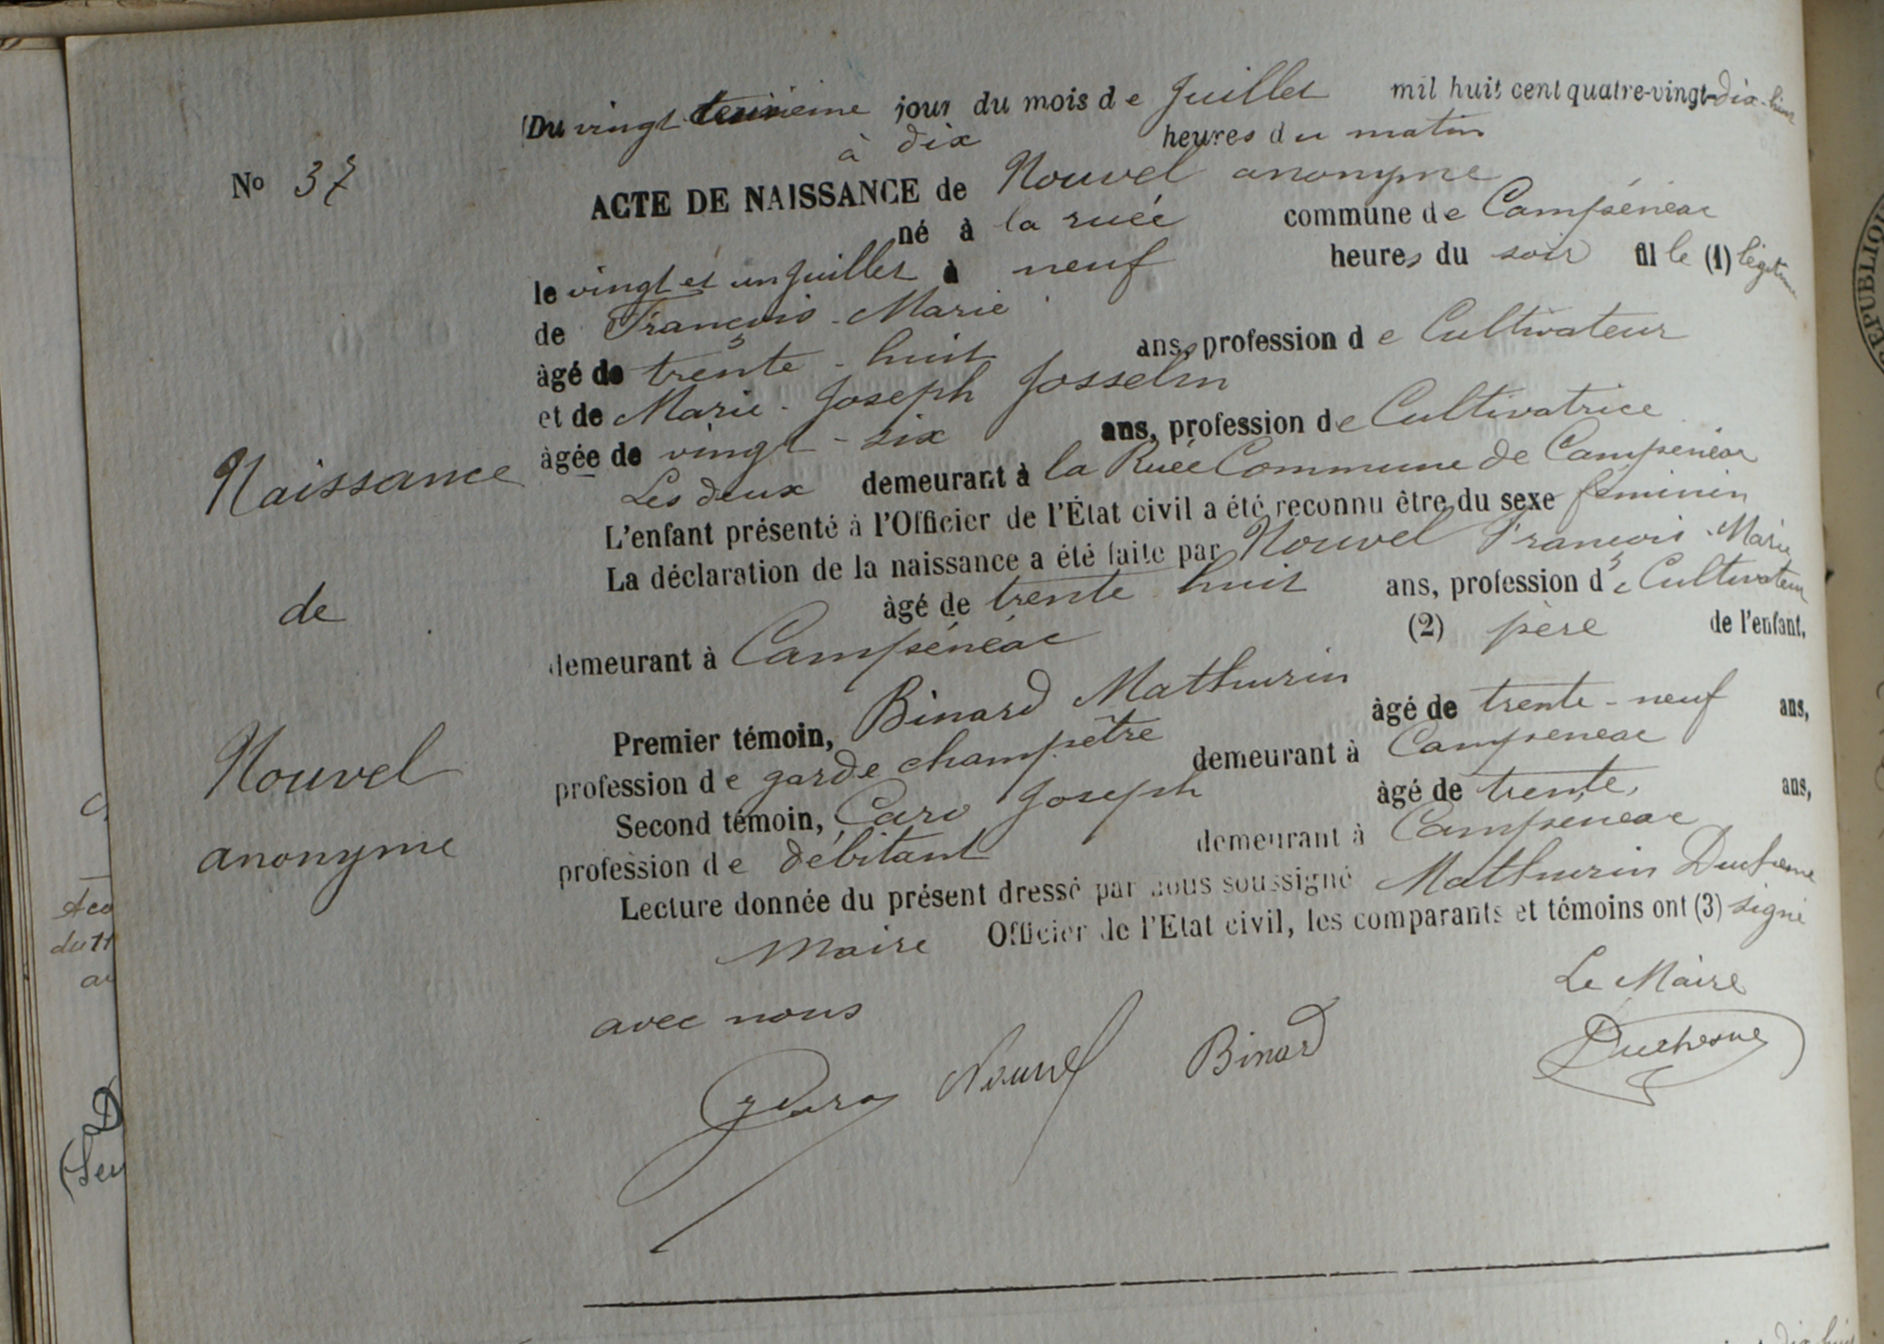 Du vingt jour du mois de Juillet mil huit cent quatre-vingt-dix-huit
à dix heures du matin
No 37
ACTE DE NAISSANCE de Nouvel anonyme
né à la ruée commune de Campénéac
le vingt et un juillet à neuf heures du soir fille (1) légitime
de François-Marie
âgé de trente-huit ans, profession de Cultivateur
et de Marie-Joseph Josselin
âgée de vingt-six ans, profession de Cultivatrice
Les deux demeurant à la Ruée Commune de Campénéac
L'enfant présenté à l'Officier de l'État civil a été reconnu être du sexe féminin
La déclaration de la naissance a été faite par Nouvel François-Marie
âgé de trente huit ans, profession de Cultivateur
demeurant à Campénéac (2) père de l'enfant,
Premier témoin, Binard Mathurin âgé de trente-neuf ans,
profession de garde champêtre demeurant à Campeneac
Second témoin, Caro Joseph âgé de trente, ans,
profession de débitant demeurant à Campeneac
Lecture donnée du présent dressé par nous soussigné Mathurin Duchesne
Maire Officier de l'Etat civil, les comparants et témoins ont (3) signé
avec nous
Le Maire
Caro Nouvel Binard Duchesne
Naissance
de
Nouvel
anonyme